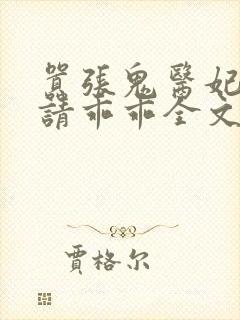 囂張鬼醫妃
請乖乖全文
賈格尔